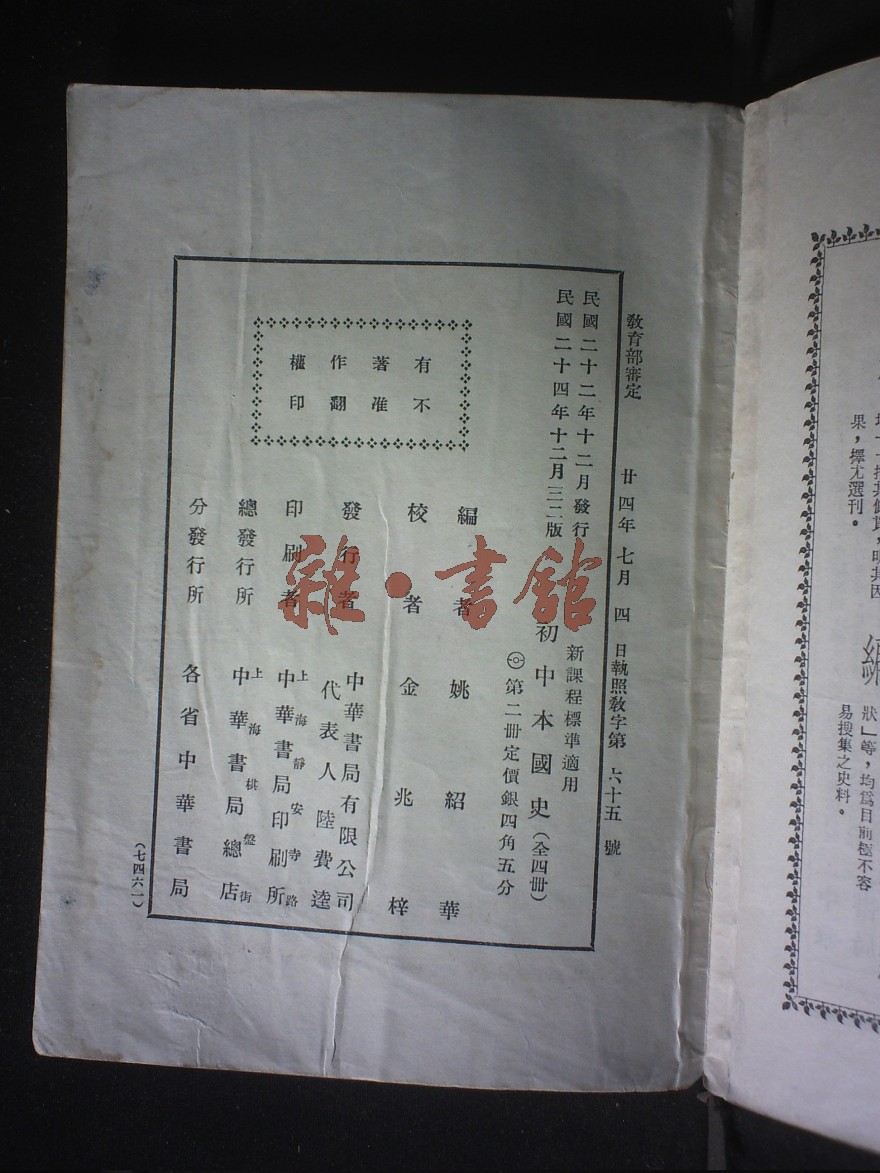 果，擇尤選刊。
狀」等，均爲目前極不容
易搜集之史料。
教育部審定 廿四年七月四日執照教字第六十五號
民國二十二年十二月發行
民國二十四年十二月三二版
新課程標準適用
初中本國史（全四冊）
第二冊定價銀四角五分
有著作權
不准翻印
編者 姚紹華
校者 金兆梓
發行者 中華書局有限公司
代表人 陸費逵
印刷者 上海靜安寺路
中華書局印刷所
總發行所 上海棋盤街
中華書局總店
分發行所 各省中華書局
（七四六一）
雜·書館